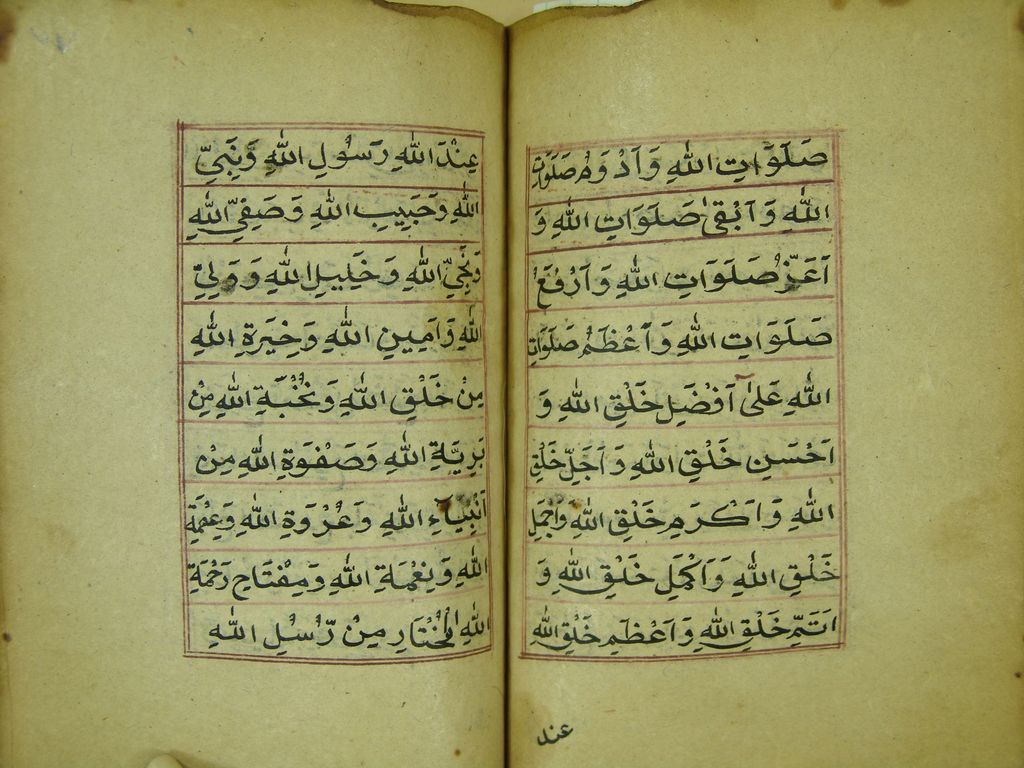 صَلَوَاتِ اللهِ وَاَدْوَمُ صَلَوَاتِ
اللهِ وَاَبْقٰى صَلَوَاتِ اللهِ وَ
اَعَزُّ صَلَوَاتِ اللهِ وَاَرْفَعُ
صَلَوَاتِ اللهِ وَاَعْظَمُ صَلَوَاتِ
اللهِ عَلٰى اَفْضَلِ خَلْقِ اللهِ وَ
اَحْسَنِ خَلْقِ اللهِ وَاَجَلِّ خَلْقِ
اللهِ وَاَكْرَمِ خَلْقِ اللهِ وَاَجْمَلِ
خَلْقِ اللهِ وَاَكْمَلِ خَلْقِ اللهِ وَ
اَتَمِّ خَلْقِ اللهِ وَاَعْظَمِ خَلْقِ اللهِ
عند
عِنْدَ اللهِ رَسُولِ اللهِ وَنَبِيِّ
اللهِ وَحَبِيبِ اللهِ وَصَفِيِّ اللهِ
وَنَجِيِّ اللهِ وَخَلِيلِ اللهِ وَوَلِيِّ
اللهِ وَاَمِينِ اللهِ وَخِيَرَةِ اللهِ
مِنْ خَلْقِ اللهِ وَنُخْبَةِ اللهِ مِنْ
بَرِيَّةِ اللهِ وَصَفْوَةِ اللهِ مِنْ
اَنْبِيَاءِ اللهِ وَعُرْوَةِ اللهِ وَعِصْمَةِ
اللهِ وَنِعْمَةِ اللهِ وَمِفْتَاحِ رَحْمَةِ
اللهِ الْمُخْتَارِ مِنْ رُّسُلِ اللهِ